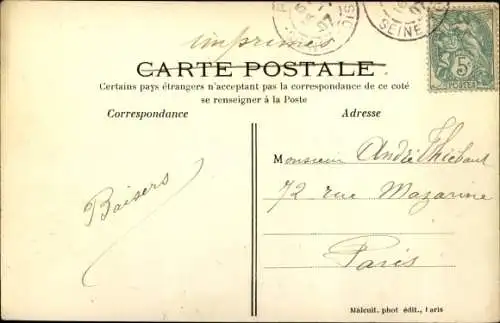 imprimés
CARTE POSTALE
Certains pays étrangers n'acceptant pas la correspondance de ce coté
se renseigner à la Poste
Correspondance
Adresse
Monsieur André Thiébaut
72 rue Mazarine
Paris
Baisers
Malcuit, phot édit., Paris
SEINE
07
07
5c
POSTES